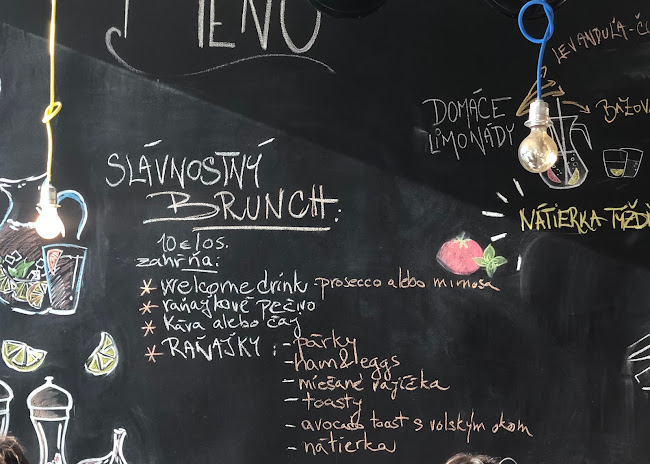 MENU
LEVANDUĽA-
DOMÁCE
LIMONÁDY
SLÁVNOSTNÝ
BRUNCH:
NÁTIERKA
10€/os.
zahŕňa:
* welcome drink - prosecco alebo mimosa
* raňajkové pečivo
* káva alebo čaj
* RAŇAJKY: - párky
- ham&eggs
- miešané vajíčka
- toasty
- avocado toast s volským okom
- nátierka